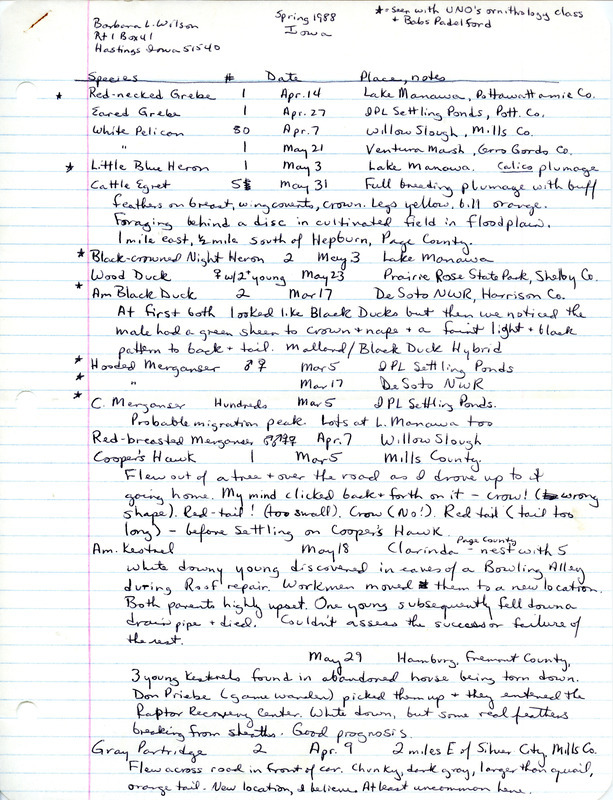 Barbara L. Wilson
Rt 1 Box 41
Hastings Iowa 51540
Spring 1988
Iowa
* = seen with UNO's ornithology class
+ Babs Padelford
Species # Date Place, notes
* Red-necked Grebe 1 Apr. 14 Lake Manawa, Pottawattamie Co.
Eared Grebe 1 Apr. 27 IPL Settling Ponds, Pott. Co.
White Pelican 80 Apr. 7 Willow Slough, Mills Co.
" 1 May 21 Ventura Marsh, Cerro Gordo Co.
* Little Blue Heron 1 May 3 Lake Manawa. Calico plumage
Cattle Egret 5 May 31 Full breeding plumage with buff
feathers on breast, wing coverts, crown. Legs yellow, bill orange.
Foraging behind a disc in cultivated field in floodplain.
1 mile east, ½ mile south of Hepburn, Page County.
* Black-crowned Night Heron 2 May 3 Lake Manawa
Wood Duck ♀ w/ 2+ young May 23 Prairie Rose State Park, Shelby Co.
* Am Black Duck 2 Mar 17 DeSoto NWR, Harrison Co.
At first both looked like Black Ducks but then we noticed the
male had a green sheen to crown + nape + a faint light + black
pattern to back + tail. Mallard/Black Duck Hybrid
* Hooded Merganser ♂♀ Mar 5 IPL Settling Ponds
* " Mar 17 DeSoto NWR
* C. Merganser Hundreds Mar 5 IPL Settling Ponds.
Probable migration peak. Lots at L. Manawa too
Red-breasted Merganser ♂♂♀♀ Apr. 7 Willow Slough
Cooper's Hawk 1 Mar 5 Mills County.
Flew out of a tree + over the road as I drove up to it
going home. My mind clicked back + forth on it - crow! (wrong
shape). Red-tail! (too small). Crow (No!). Red tail (tail too
long) - before settling on Cooper's Hawk.
Am. Kestrel May 18 Clarinda Page County - nest with 5
white downy young discovered in eaves of a Bowling Alley
during Roof repair. Workmen moved them to a new location.
Both parents highly upset. One young subsequently fell down a
drain pipe + died. Couldn't assess the success or failure of
the rest.
May 29 Hamburg, Fremont County,
3 young Kestrels found in abandoned house being torn down.
Don Priebe (game warden) picked them up + they entered the
Raptor Recovery Center. White down, but some real feathers
breaking from sheaths. Good prognosis.
Gray Partridge 2 Apr. 9 2 miles E of Silver City Mills Co.
Flew across road in front of car. Chunky, dark gray, larger than quail,
orange tail. New location, I believe. At least uncommon here.